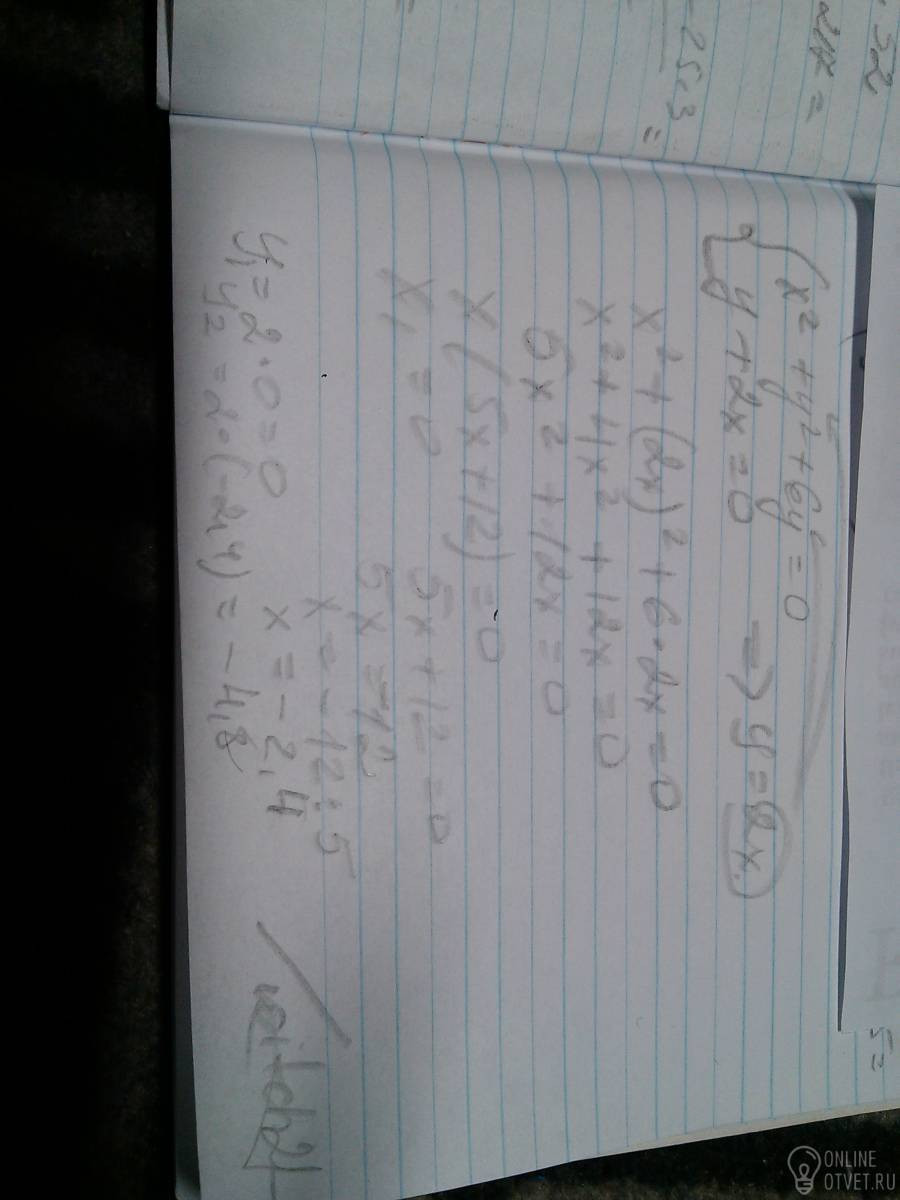 x² + y² + 6y = 0
y + 2x = 0 => y = 2x.
x² + (2x)² + 6·2x = 0
x² + 4x² + 12x = 0
5x² + 12x = 0
x(5x+12) = 0
x₁ = 0 5x+12 = 0
5x = -12
x = -12:5
x = -2,4
y₁ = 2·0 = 0
y₂ = 2·(-2,4) = -4,8
25·3 =
52
5=
ONLINE
OTVET.RU